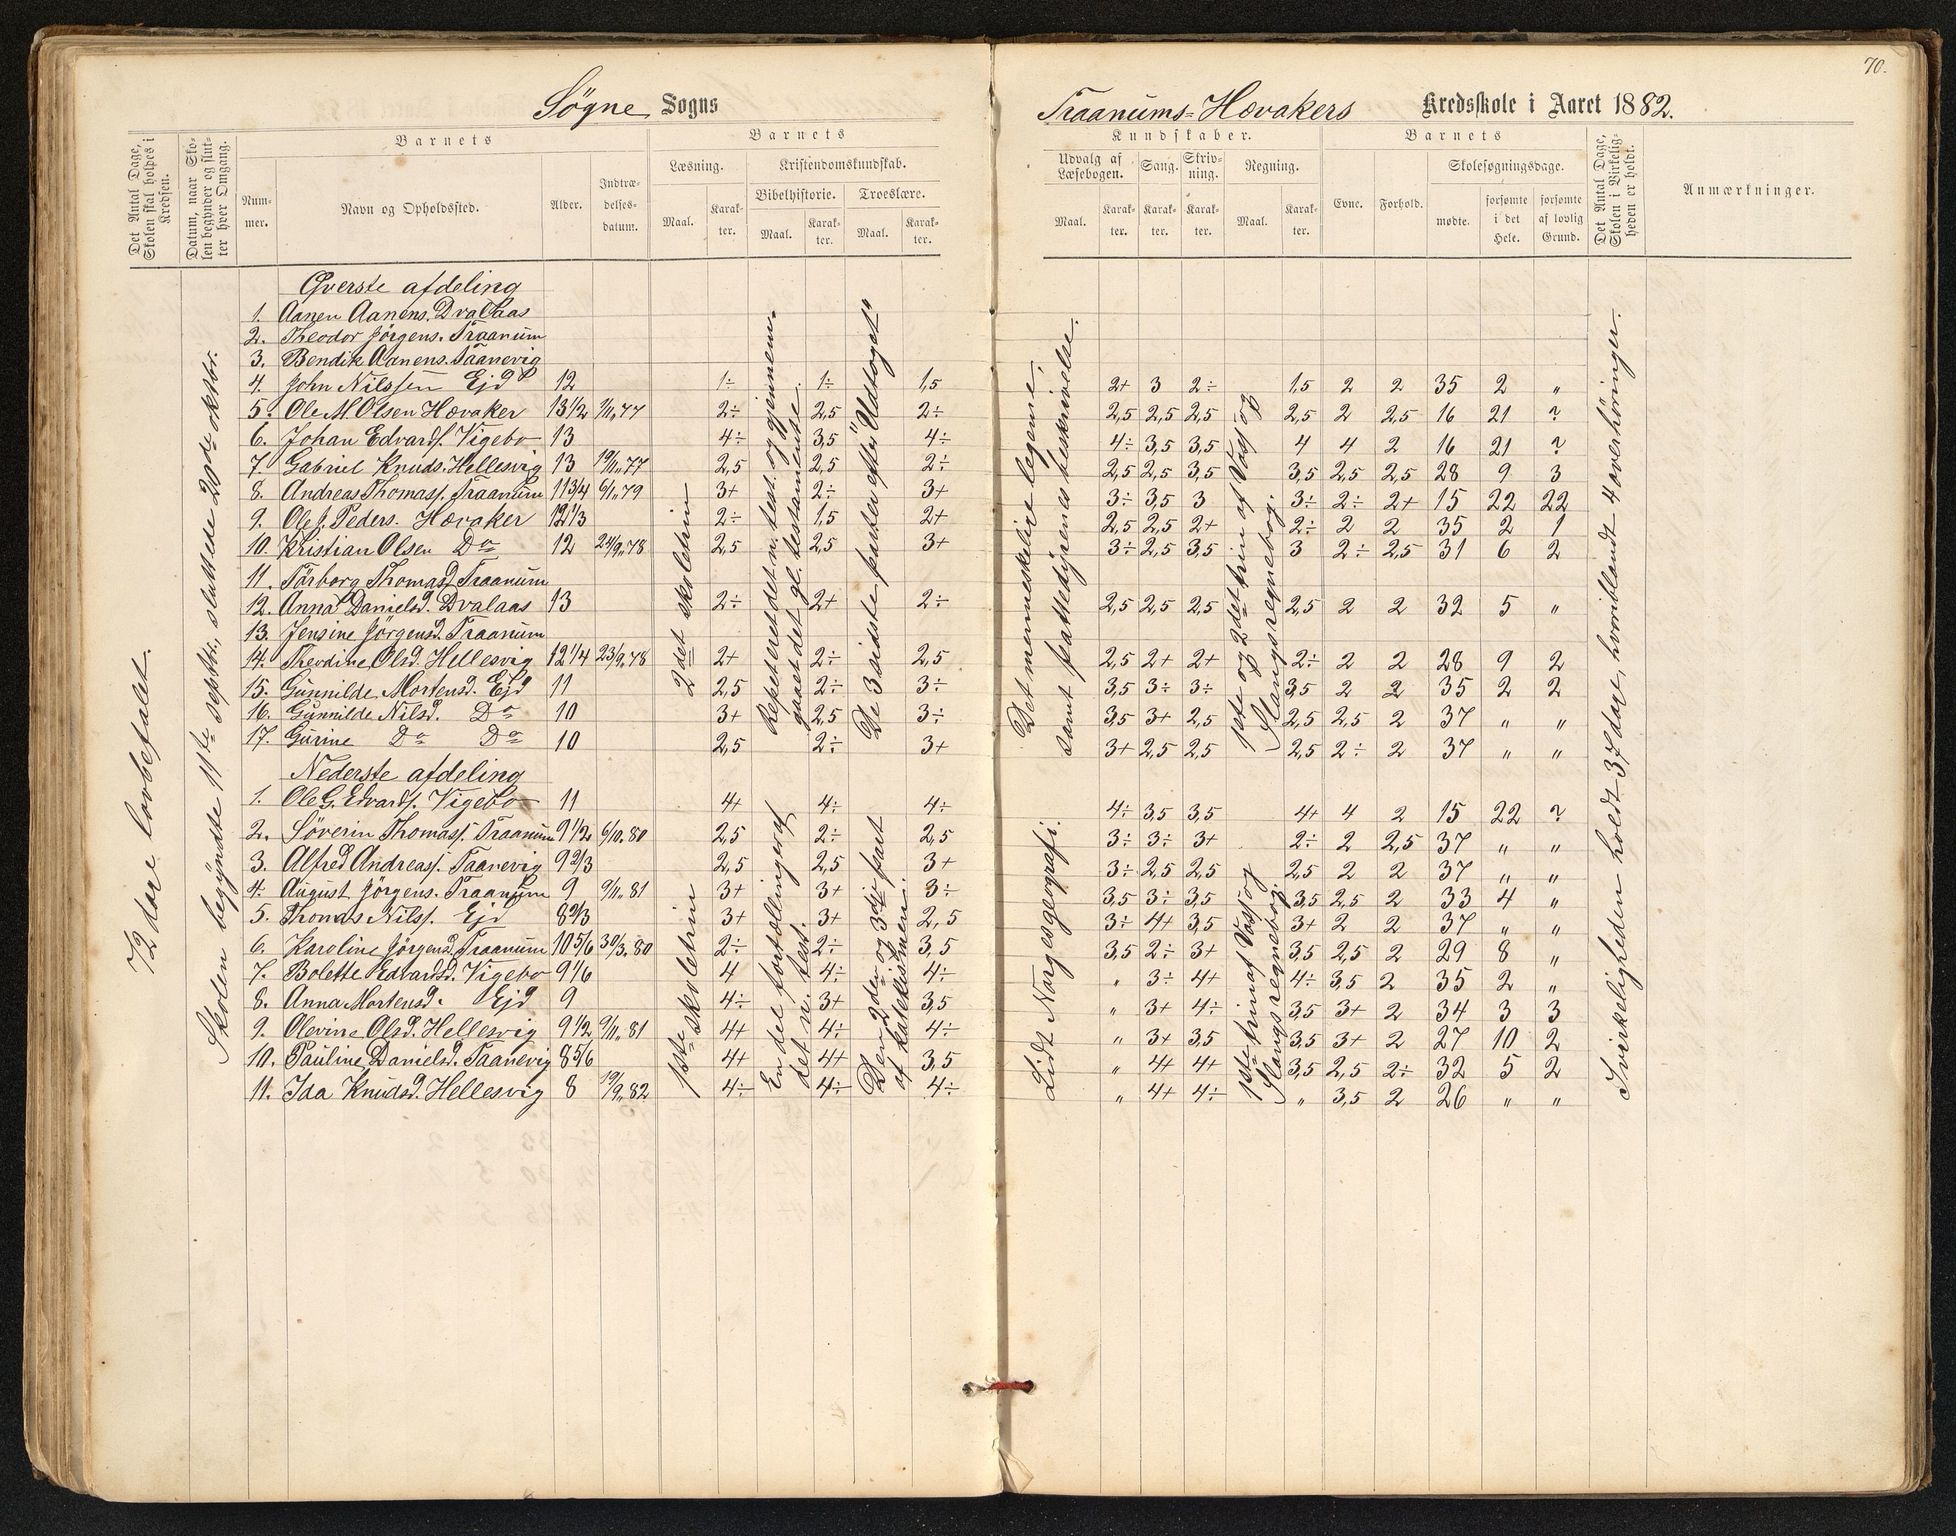 70.
Søgne Sogns
Traanums-Hævakers Kredsskole i Aaret 1882.
Det Antal Dage, Skolen skal holdes i Kredsen.
Datum, naar Skolen begynder og slutter hver Omgang.
Barnets
Nummer.
Navn og Opholdssted.
Alder.
Indtrædelsesdatum.
Barnets
Læsning.
Maal.
Karakter.
Kristendomskundskab.
Bibelhistorie.
Maal.
Karakter.
Troeslære.
Maal.
Karakter.
Kundskaber.
Udvalg af Læsebogen.
Maal.
Karakter.
Sang.
Karakter.
Skrivning.
Karakter.
Regning.
Maal.
Karakter.
Barnets
Evne.
Forhold.
Skolesøgningsdage.
mødte.
forsømte i det Hele.
forsømte af lovlig Grund.
Det Antal Dage, Skolen i Virkeligheden er holdt.
Anmærkninger.
72 dare lovbefalet.
Skolen begyndte 11te septbr., sluttede 20de oktbr.
2det skoletrin
Repeteret det n. test. og gjennemgaaet det gl. testamente.
De 3 sidste parter efter "Udtoget"
Det menneskelige legeme, samt pattedyrenes beskrivelse.
1ste og 2det trin af Vass og Slangs regnebog.
I virkeligheden holdt 37 dage, hvoriblandt 4 overhøringer.
Øverste afdeling
1. Aanen Aanens. Dvalaas
2. Theodor Jørgens. Traanum
3. Bendik Aanens. Taanevig
4. John Nilssen Ejd 12 1÷ 1÷ 1,5 2+ 3 2÷ 1,5 2 2 35 2 "
5. Ole M. Olsen Hævaker 13 1/2 7/11,77 2÷ 2,5 2÷ 2,5 2,5 2,5 2,5 2 2,5 16 21 ?
6. Johan Edvards. Vigebo 13 4÷ 3,5 4÷ 4÷ 3,5 3,5 4 4 2 16 21 ?
7. Gabriel Knuds. Hellesvig 13 19/11,77 2,5 2,5 2÷ 2,5 2,5 3,5 3,5 2,5 2,5 28 9 3
8. Andreas Thomass. Traanum 11 3/4 6/11,79 3+ 2÷ 3+ 3÷ 3,5 3 3÷ 2÷ 2+ 15 22 22
9. Ole J. Peders. Hævaker 12 1/3 2÷ 1,5 2+ 2,5 2,5 2+ 2÷ 2 2 35 2 1
10. Kristian Olsen Do 12 24/9,78 2,5 2,5 3+ 3÷ 2,5 3,5 3 2÷ 2,5 31 6 2
11. Tørborg Thomasd. Traanum
12. Anna Danielsd. Dvalaas 13 2÷ 2+ 2÷ 2,5 2,5 2,5 2,5 2 2 32 5 "
13. Jensine Jørgensd. Traanum
14. Theodine Olsd. Hellesvig 12 1/4 23/9,78 2+ 2÷ 2,5 2,5 2+ 2+ 2÷ 2 2 28 9 2
15. Gunnilde Mortensd. Ejd 11 2,5 2÷ 3÷ 3,5 3÷ 3÷ 3,5 2 2 35 2 2
16. Gunnilde Nilsd. Do 10 3+ 2,5 3÷ 3,5 3+ 2,5 2,5 2,5 2 37 " "
17. Gurine Do Do 10 2,5 2÷ 3+ 3+ 2,5 2,5 2,5 2÷ 2 37 " "
Nederste afdeling
1ste skoletrin
En del fortællinger af det n. test.
Den 2den og 3die part af katekismen.
Lidt Norgesgeografi.
1ste trin af Vass og Slangs regnebog.
1. Ole G. Edvards. Vigebo 11 4+ 4÷ 4÷ 4÷ 3,5 3,5 4+ 4 2 15 22 ?
2. Søverin Thomass. Traanum 9 1/2 6/10,80 2,5 2÷ 2,5 3÷ 3÷ 3+ 2÷ 2 2,5 37 " "
3. Alfred Andreass. Taanevig 9 2/3 2,5 2,5 3+ 3÷ 2,5 2,5 2,5 2 2 37 " "
4. August Jørgens. Traanum 9 9/11,81 3+ 3+ 3÷ 3,5 3÷ 3,5 3,5 2,5 2 33 4 "
5. Thomas Nilss. Ejd 8 2/3 3+ 3+ 2,5 3÷ 4+ 3,5 3+ 2 2 37 " "
6. Karoline Jørgensd. Traanum 10 5/6 30/3,80 2÷ 2÷ 3,5 3,5 2÷ 3+ 3,5 2,5 2 29 8 "
7. Bolette Edvardsd. Vigebo 9 1/6 4 4÷ 4÷ " 3÷ 4+ 4÷ 3,5 2 35 2 "
8. Anna Mortensd. Ejd 9 4÷ 3+ 3,5 " 3+ 4÷ 3,5 3+ 2 34 3 3
9. Olevine Olsd. Hellesvig 9 1/2 9/11,81 4+ 4÷ 4÷ " 3+ 3,5 3,5 3+ 2 27 10 2
10. Pauline Danielsd. Taanevig 8 5/6 4+ 4+ 3,5 " 4+ 4+ 3,5 2,5 2÷ 32 5 2
11. Ida Knudsd. Hellesvig 8 19/9,82 4÷ 4÷ 4÷ " 4+ 4÷ " 3,5 2 26 " "